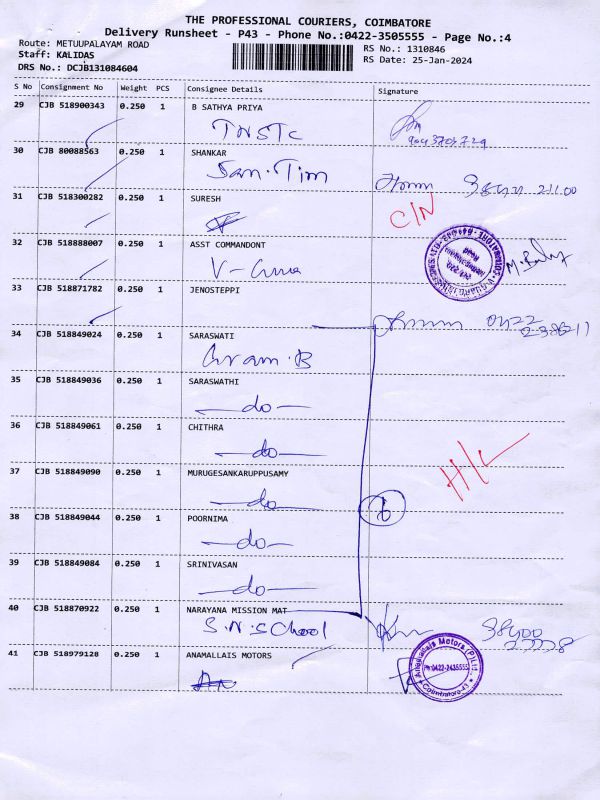 THE PROFESSIONAL COURIERS, COIMBATORE
Delivery Runsheet - P43 - Phone No.:0422-3505555 - Page No.:4
Route: METUUPALAYAM ROAD
RS No.: 1310846
Staff: KALIDAS
RS Date: 25-Jan-2024
DRS No.: DCJB131084604
S No Consignment No Weight PCS Consignee Details Signature
29 CJB 518900343 0.250 1 B SATHYA PRIYA
TNSTC
30 CJB 80088563 0.250 1 SHANKAR
San. Tim
31 CJB 518300282 0.250 1 SURESH
C/N
32 CJB 518888007 0.250 1 ASST COMMANDONT
33 CJB 518871782 0.250 1 JENOSTEPPI
34 CJB 518849024 0.250 1 SARASWATI
Gram. B
35 CJB 518849036 0.250 1 SARASWATHI
— do —
36 CJB 518849061 0.250 1 CHITHRA
— do —
H/L
37 CJB 518849090 0.250 1 MURUGESANKARUPPUSAMY
— do —
6
38 CJB 518849044 0.250 1 POORNIMA
— do —
39 CJB 518849084 0.250 1 SRINIVASAN
— do —
40 CJB 518870922 0.250 1 NARAYANA MISSION MAT
S.N. School
41 CJB 518979128 0.250 1 ANAMALLAIS MOTORS
Anamallais Motors (P) Ltd.
Ph:0422-2435555
Coimbatore-43